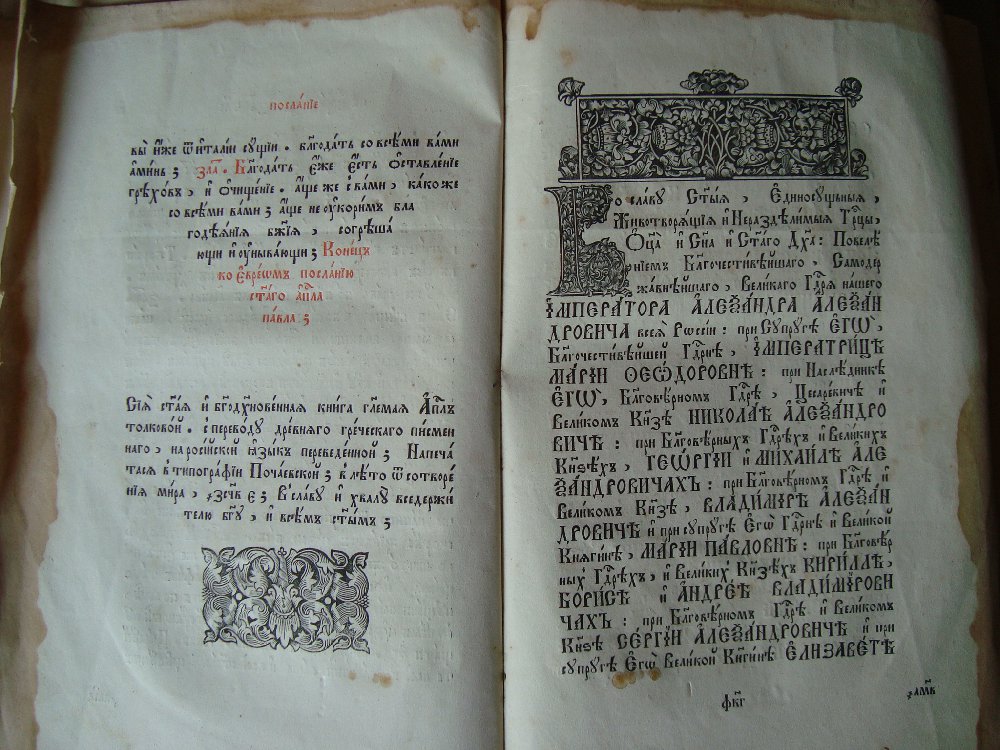 посла́нїе
вы̀ и҆̀же ѿ и҆талі́и сꙋ́щїи . блг҃ода́ть со всѣ́ми ва́ми
а҆ми́нь ⁏ заⷱ҇ . Блг҃ода́ть є҆́же є҆́сть ѡ҆ставле́нїе
грѣхо́въ , и҆ ѡ҆чище́нїе . а҆́ще же с ва́ми , ꙗ҆́коже
со всѣ́ми ва́ми ⁏ а҆́ще не ѹ҆кори́мъ бла
годѣѧ́нїѧ бж҃їѧ , согрѣша́
ющи и҆ ѹ҆ныва́ющи ⁏ Коне́цъ
ко є҆вре́ѡмъ посла́нїю
ст҃а́го а҆пⷭ҇ла
па́вла ⁏
Сїѧ̀ ст҃а́ѧ и҆ бг҃одꙋхнове́ннаѧ кни́га гл҃емаѧ А҆пⷭ҇лъ
толко́вой . с перево́дꙋ дре́внѧго гре́ческаго пи́смен
наго , на росі́йскїй ꙗ҆зы́къ переведе́нной ⁏ Напеча́
тасѧ в типогра́фїи Поча́евской ⁏ в лѣ́то ѿ сотворе́
нїѧ ми́ра , В сла́вꙋ и҆ хвалꙋ̀ вседержи́
телю бг҃ꙋ , и҆ всѣ́мъ ст҃ы́мъ ⁏
Во сла́вꙋ Ст҃ы́ѧ , Є҆диносꙋ́щныѧ ,
Животворѧ́щїѧ и҆ Нераздѣли́мыѧ Трⷪ҇цы ,
Ѻ҆ц҃а̀ и҆ Сн҃а и҆ Ст҃а́го Дх҃а : Повелѣ́
нїемъ Бл҃гочести́вѣйшаго , Самодер
жа́внѣйшаго , Вели́каго Гдⷭ҇рѧ на́шего
И҆МПЕРА́ТОРА А҆ЛЕѮА́НДРА А҆ЛЕѮА́Н
ДРОВИЧА всеѧ̀ Рѡссі́и : при Сꙋпрꙋ́гѣ Є҆гѡ̀ ,
Бл҃гочести́вѣйшей Гдⷭ҇рнѣ , И҆МПЕРАТРИ́ЦѢ
МАРІ́И ѲЕѠ́ДОРОВНѢ : при Наслѣ́дникѣ
Є҆гѡ̀ , Бл҃говѣ́рномъ Гдⷭ҇рѣ , Цесаре́вичѣ и҆
Вели́комъ Кн҃зѣ НИКОЛА́Ѣ А҆ЛЕѮА́НДРО
ВИЧѢ : при Бл҃говѣ́рныхъ Гдⷭ҇рѣхъ и҆ Вели́кихъ
Кн҃зѣхъ , ГЕѠ́РГІИ и҆ МИХАИ́ЛѢ А҆ЛЕ
ѮА́НДРОВИЧАХЪ : при Бл҃говѣ́рномъ Гдⷭ҇рѣ и҆
Вели́комъ Кн҃зѣ , ВЛАДИ́МІРѢ А҆ЛЕѮА́Н
ДРОВИЧѢ и҆ при сꙋпрꙋ́гѣ Є҆гѡ̀ Гдⷭ҇рнѣ и҆ Вели́кой
Кнѧги́нѣ , МАРІ́И ПА́ВЛОВНѢ : при Бл҃говѣ́р
ныхъ Гдⷭ҇рѣхъ , и҆ Вели́кихъ Кн҃зѣхъ КИРИ́ЛЛѢ ,
БОРИ́СѢ и҆ А҆НДРЕ́Ѣ ВЛАДИ́МІРОВИ
ЧАХЪ : при Бл҃говѣ́рномъ Гдⷭ҇рѣ и҆ Вели́комъ
Кн҃зѣ СЕ́РГІИ А҆ЛЕѮА́НДРОВИЧѢ и҆ при
сꙋпрꙋ́гѣ Є҆гѡ̀ Вели́кой Кнги́нѣ Є҆ЛИЗАВЕ́ТѢ
фк҃г